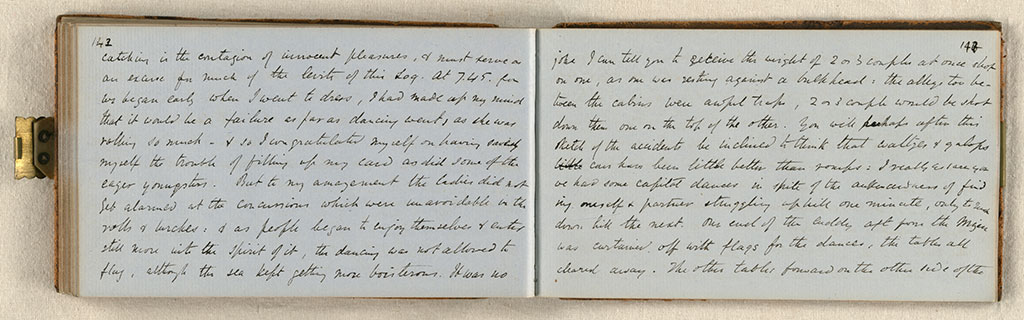 142
catching is the contagion of innocent pleasures, & must serve as
an excuse for much of the levity of this Log. At 7.45. for
we began early when I went to dress, I had made up my mind
that it would be a failure as far as dancing went, as she was
rolling so much - & so I congratulated myself on having saved
myself the trouble of filling up my card as did some of the
eager youngsters. But to my amazement the ladies did not
get alarmed at the concussions which were unavoidable in the
rolls & lurches: & as people began to enjoy themselves & enter
still more into the spirit of it, the dancing was not allowed to
flag, although the sea kept getting more boisterous. It was no
143
joke I can tell you to receive the weight of 2 or 3 couples at once
on one, as one was resting against a bulkhead: the alleys too be-
tween the cabins were awful traps, 2 or 3 couple would be shot
down them one on the top of the other. You will perhaps after this
sketch of the accidents be inclined to think that waltzes & galops
can have been little better than romps: I really assure you
we had some capital dances in spite of the awkwardness of find
ing oneself & partner struggling up hill one minute, only to
down hill the next. One end of the cuddy, aft from the Mizen
was curtained off with flags for the dances, the tables all
cleared away. The other tables forward on the other side of the